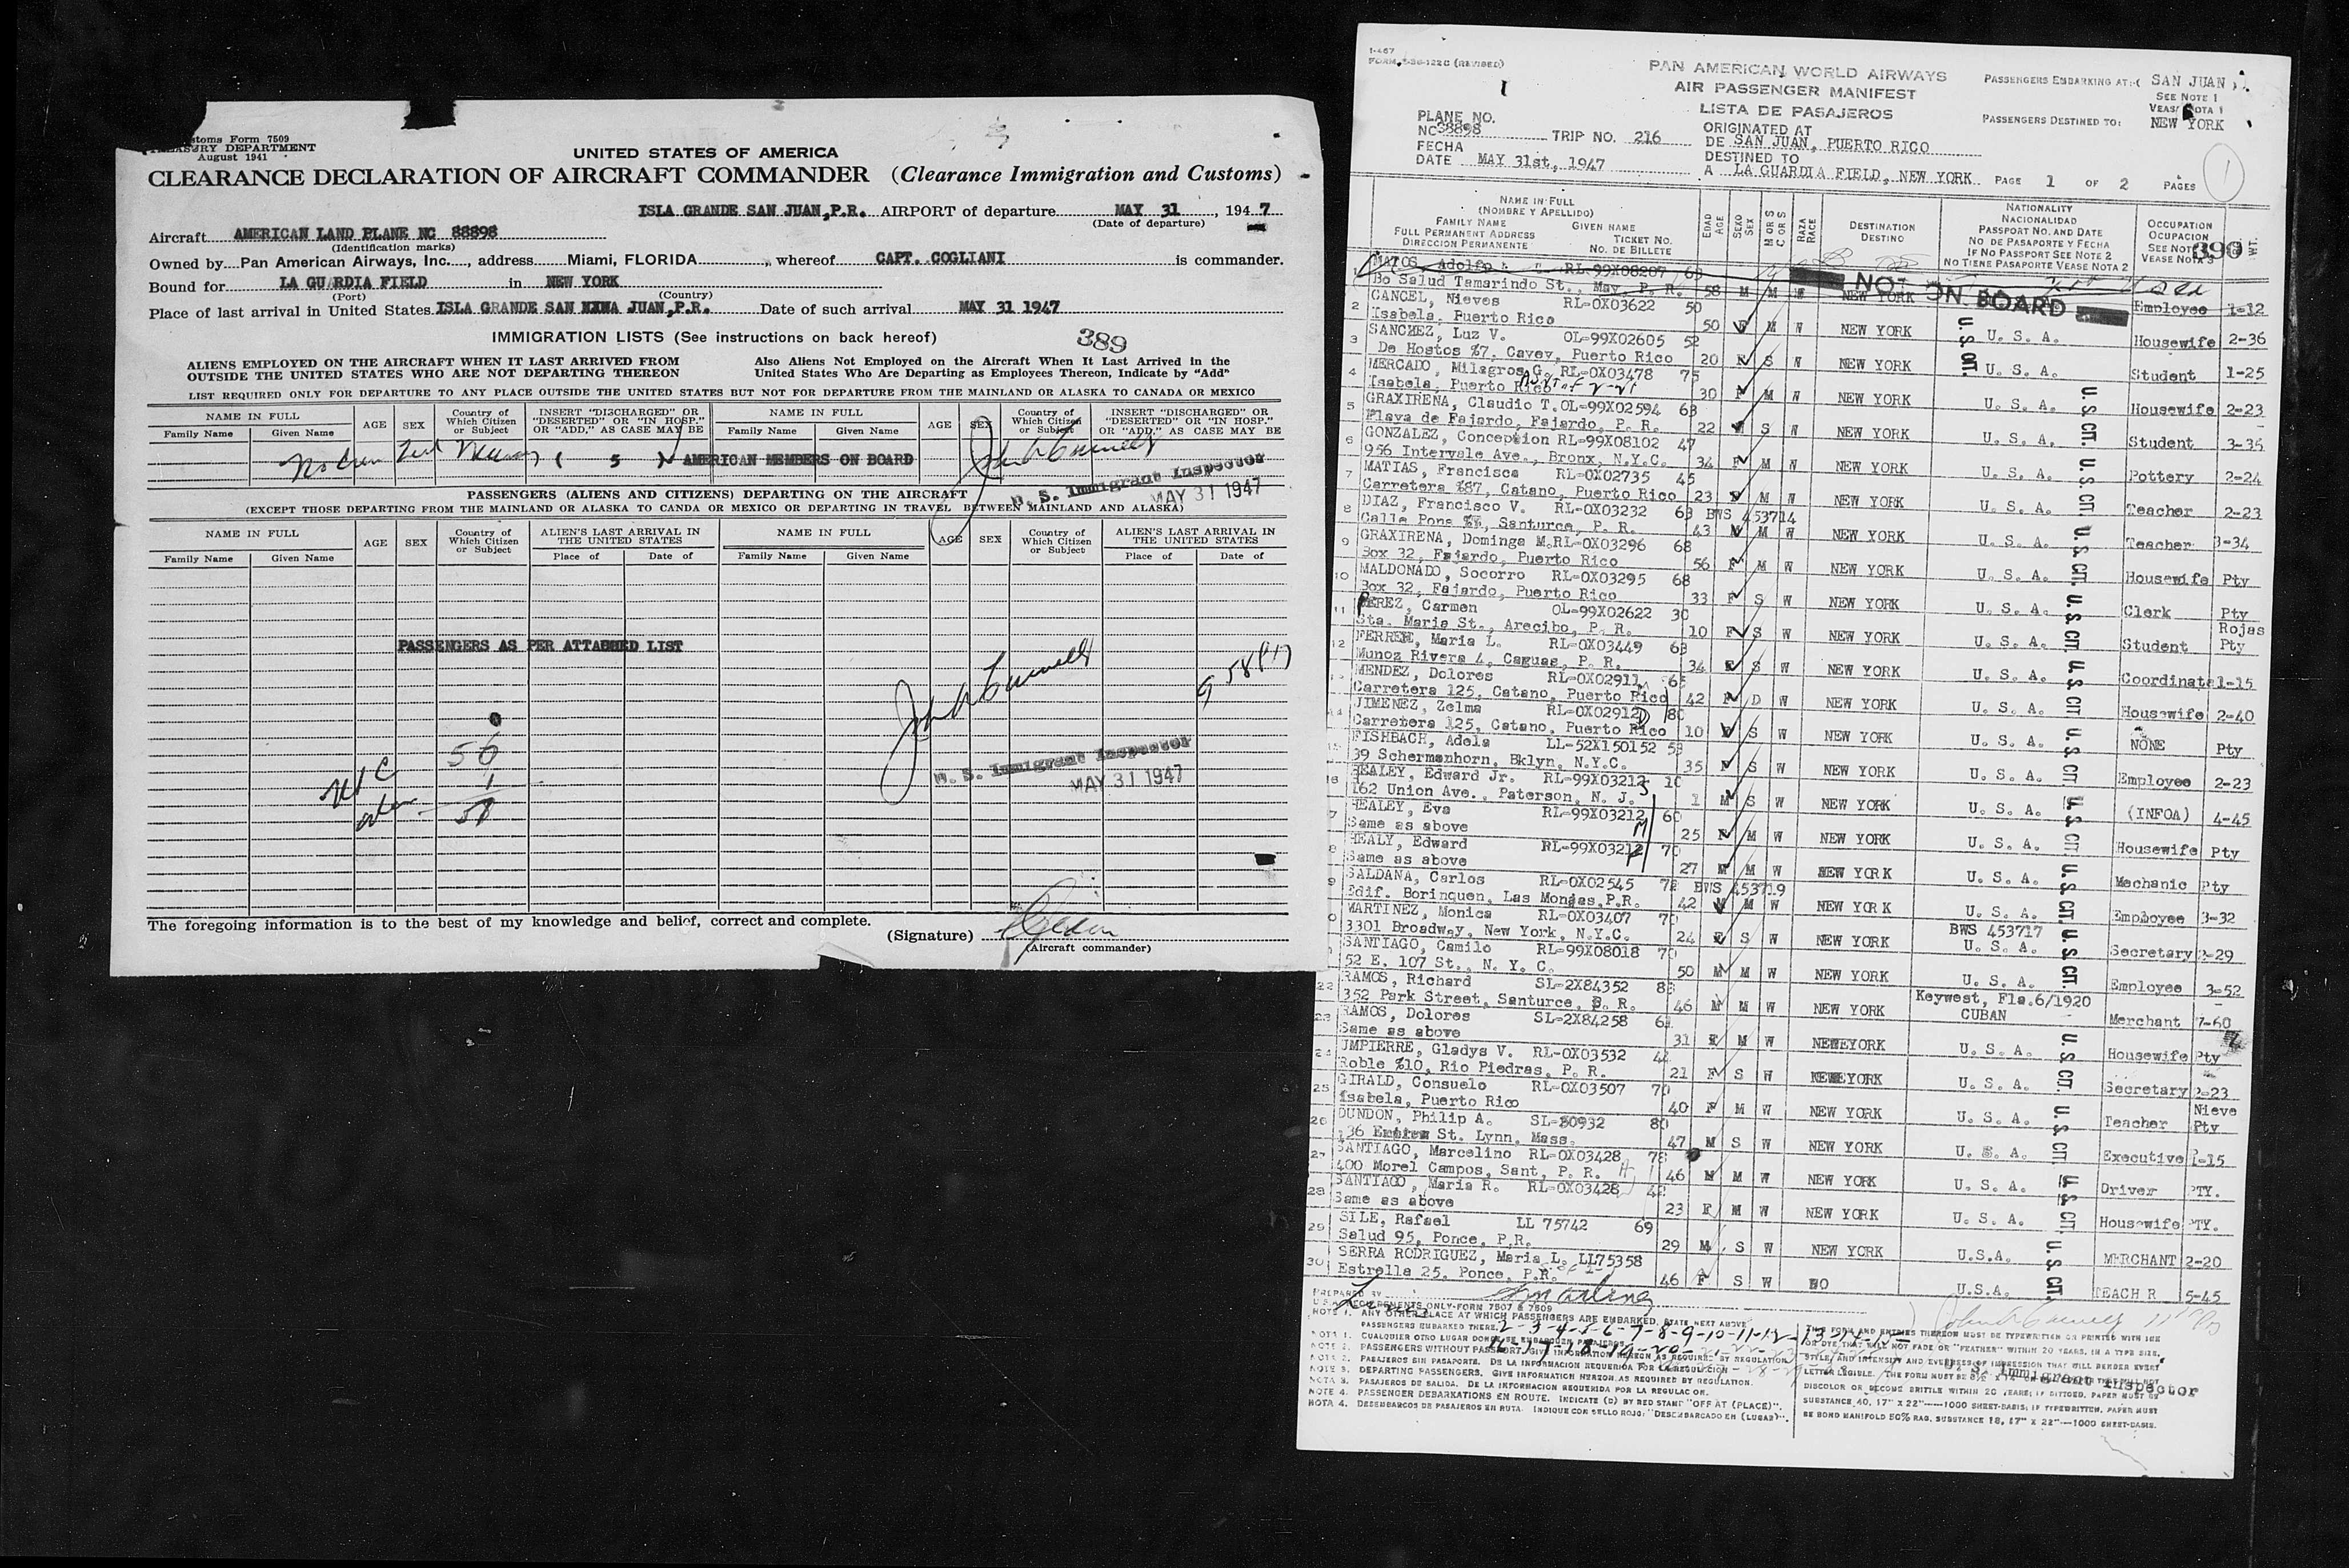 Customs Form 7509
TREASURY DEPARTMENT
August 1941
UNITED STATES OF AMERICA
CLEARANCE DECLARATION OF AIRCRAFT COMMANDER (Clearance Immigration and Customs)
ISLA GRANDE SAN JUAN,P.R. AIRPORT of departure MAY 31, 1947
(Date of departure)
Aircraft AMERICAN LAND PLANE NC 88898
(Identification marks)
Owned by Pan American Airways, Inc., address Miami, FLORIDA, whereof CAPT. COGLIANI is commander.
Bound for LA GUARDIA FIELD in NEW YORK
(Port) (Country)
Place of last arrival in United States ISLA GRANDE SAN JUAN,P.R. Date of such arrival MAY 31 1947
IMMIGRATION LISTS (See instructions on back hereof) 389
ALIENS EMPLOYED ON THE AIRCRAFT WHEN IT LAST ARRIVED FROM
OUTSIDE THE UNITED STATES WHO ARE NOT DEPARTING THEREON
Also Aliens Not Employed on the Aircraft When It Last Arrived in the
United States Who Are Departing as Employees Thereon, Indicate by "Add"
LIST REQUIRED ONLY FOR DEPARTURE TO ANY PLACE OUTSIDE THE UNITED STATES BUT NOT FOR DEPARTURE FROM THE MAINLAND OR ALASKA TO CANADA OR MEXICO
NAME IN FULL
Family Name Given Name
AGE SEX
Country of Which Citizen or Subject
INSERT "DISCHARGED" OR "DESERTED" OR "IN HOSP." OR "ADD," AS CASE MAY BE
NAME IN FULL
Family Name Given Name
AGE SEX
Country of Which Citizen or Subject
INSERT "DISCHARGED" OR "DESERTED" OR "IN HOSP." OR "ADD," AS CASE MAY BE
( 5 ) AMERICAN MEMBERS ON BOARD
U. S. Immigrant Inspector
MAY 31 1947
PASSENGERS (ALIENS AND CITIZENS) DEPARTING ON THE AIRCRAFT
(EXCEPT THOSE DEPARTING FROM THE MAINLAND OR ALASKA TO CANDA OR MEXICO OR DEPARTING IN TRAVEL BETWEEN MAINLAND AND ALASKA)
NAME IN FULL
Family Name Given Name
AGE SEX
Country of Which Citizen or Subject
ALIEN'S LAST ARRIVAL IN THE UNITED STATES
Place of Date of
NAME IN FULL
Family Name Given Name
AGE SEX
Country of Which Citizen or Subject
ALIEN'S LAST ARRIVAL IN THE UNITED STATES
Place of Date of
PASSENGERS AS PER ATTACHED LIST
56
1
U. S. Immigrant Inspector
MAY 31 1947
The foregoing information is to the best of my knowledge and belief, correct and complete.
(Signature)
(Aircraft commander)
I-467
PAN AMERICAN WORLD AIRWAYS
AIR PASSENGER MANIFEST
LISTA DE PASAJEROS
PASSENGERS EMBARKING AT: SAN JUAN
SEE NOTE 1
PASSENGERS DESTINED TO: NEW YORK
PLANE NO.
NC 38898 TRIP NO. 216
FECHA
DATE MAY 31st, 1947
ORIGINATED AT
DE SAN JUAN, PUERTO RICO
DESTINED TO
A LA GUARDIA FIELD, NEW YORK PAGE 1 OF 2 PAGES
1
NAME IN FULL
(NOMBRE Y APELLIDO)
FAMILY NAME GIVEN NAME
FULL PERMANENT ADDRESS TICKET NO.
DIRECCION PERMANENTE NO. DE BILLETE
EDAD AGE
SEXO SEX
M OR S
C O S
RAZA RACE
DESTINATION
DESTINO
NATIONALITY
NACIONALIDAD
PASSPORT NO. AND DATE
NO DE PASAPORTE Y FECHA
IF NO PASSPORT SEE NOTE 2
NO TIENE PASAPORTE VEASE NOTA 2
OCCUPATION
OCUPACION
SEE NOTE 3
VEASE NOTA 3
390
WT.
1 MATOS, Adolfo RL-99X08207
Bo Salud Tamarindo St., May, P. R. 58 M M W NEW YORK NOT ON BOARD Employee 1-12
2 CANCEL, Nieves RL-0X03622 50
Isabela, Puerto Rico 50 F M W NEW YORK U. S. A. Housewife 2-36
3 SANCHEZ, Luz V. OL-99X02605 52
De Hostos %7, Cayey, Puerto Rico 20 F S W NEW YORK U. S. A. Student 1-25
4 MERCADO, Milagros G. RL-0X03478 75
Isabela, Puerto Rico 30 F M W NEW YORK U. S. A. Housewife 2-23
5 GRAXIRENA, Claudio T. OL-99X02594 63
Playa de Fajardo, Fajardo, P. R. 22 M S W NEW YORK U. S. A. Student 3-35
6 GONZALEZ, Conception RL-99X08102 47
956 Intervale Ave., Bronx, N.Y.C. 34 F M W NEW YORK U. S. A. Pottery 2-24
7 MATIAS, Francisca RL-0X02735 45
Carretera %87, Catano, Puerto Rico 23 F M W NEW YORK U. S. A. Teacher 2-23
8 DIAZ, Francisco V. RL-0X03232 63 BWS 453714
Calle Pons, Santurce, P. R. 43 M M W NEW YORK U. S. A. Teacher 3-34
9 GRAXIRENA, Dominga M. RL-0X03296 68
Box 32, Fajardo, Puerto Rico 56 F M W NEW YORK U. S. A. Housewife Pty
10 MALDONADO, Socorro RL-0X03295 68
Box 32, Fajardo, Puerto Rico 33 F S W NEW YORK U. S. A. Clerk Pty
11 PEREZ, Carmen OL-99X02622 30
Sta. Maria St., Arecibo, P. R. 10 F S W NEW YORK U. S. A. Student Rojas Pty
12 FERRER, Maria L. RL-0X03449 63
Munoz Rivera 4, Caguas, P. R. 34 F S W NEW YORK U. S. A. Coordinate 1-15
MENDEZ, Dolores RL-0X02911
Carretera 125, Catano, Puerto Rico 42 F D W NEW YORK U. S. A. Housewife 2-40
14 JIMENEZ, Zelma RL-0X02912
Carretera 125, Catano, Puerto Rico 10 F S W NEW YORK U. S. A. NONE Pty
15 FISHBACH, Adela LL-52X150152
39 Schermenhorn, Bklyn, N.Y.C. 35 F S W NEW YORK U. S. A. Employee 2-23
16 HEALEY, Edward Jr. RL-99X03212 10
162 Union Ave., Paterson, N. J. 1 M S W NEW YORK U. S. A. (INFOA) 4-45
17 HEALEY, Eva RL-99X03212 60
Same as above 25 F M W NEW YORK U. S. A. Housewife Pty
18 HEALY, Edward RL-99X03212 70
Same as above 27 M M W NEW YORK U. S. A. Mechanic Pty
19 SALDANA, Carlos RL-0X02545 72 BWS 453719
Edif. Borinquen, Las Monjas, P.R. 42 M M W NEW YORK U. S. A. Employee 3-32
20 MARTINEZ, Monica RL-0X03407 70 BWS 453717
3301 Broadway, New York, N.Y.C. 24 F S W NEW YORK U. S. A. Secretary 2-29
SANTIAGO, Camilo RL-99X08018 70
52 E. 107 St., N. Y. C. 50 M M W NEW YORK U. S. A. Employee 3-52
22 RAMOS, Richard SL-2X84352 Keywest, Fla.6/1920
352 Park Street, Santurce, P. R. 46 M M W NEW YORK CUBAN Merchant 7-60
23 RAMOS, Dolores SL-2X84258
Same as above 31 F M W NEWEYORK U. S. A. Housewife Pty
24 UMPIERRE, Gladys V. RL-0X03532
Roble %10, Rio Piedras, P. R. 21 F S W NEWEYORK U. S. A. Secretary 2-23
25 GIRALD, Consuelo RL-0X03507 70
Isabela, Puerto Rico 40 F M W NEW YORK U. S. A. Teacher Nieve Pty
26 DUNDON, Philip A. SL-80932 80
136 St. Lynn, Mass. 47 M S W NEW YORK U. S. A. Executive 1-15
27 SANTIAGO, Marcelino RL-0X03428
400 Morel Campos, Sant, P. R. 46 M M W NEW YORK U. S. A. Driver PTY.
28 SANTIAGO, Maria R. RL-0X03428
Same as above 23 F M W NEW YORK U. S. A. Housewife PTY.
29 SILE, Rafael LL 75742 69
Salud 95, Ponce, P.R. 29 M S W NEW YORK U.S.A. MERCHANT 2-20
30 SERRA RODRIGUEZ, Maria L. LL75358
Estrella 25, Ponce, P.R. 46 F S W U.S.A. TEACH R 5-45
U.S. CIT.
PREPARED BY
U.S.A. REQUIREMENTS ONLY-FORM 7507 & 7509
NOTE 1. ANY OTHER PLACE AT WHICH PASSENGERS ARE EMBARKED, STATE NEXT ABOVE
PASSENGERS EMBARKED THERE.
NOTA 1. CUALQUIER OTRO LUGAR DONDE SE EMBARQUEN PASAJEROS
NOTE 2. PASSENGERS WITHOUT PASSPORT, GIVE INFORMATION HEREON AS REQUIRED BY REGULATION
NOTA 2. PASAJEROS SIN PASAPORTE. DE LA INFORMACION REQUERIDA POR LA REGULACION
NOTE 3. DEPARTING PASSENGERS. GIVE INFORMATION HEREON AS REQUIRED BY REGULATION.
NOTA 3. PASAJEROS DE SALIDA. DE LA INFORMACION REQUERIDA POR LA REGULACION.
NOTE 4. PASSENGER DEBARKATIONS EN ROUTE. INDICATE (D) BY RED STAMP "OFF AT (PLACE)".
NOTA 4. DESEMBARCOS DE PASAJEROS EN RUTA. INDIQUE CON SELLO ROJO: "DESEMBARCADO EN (LUGAR)".
2-3-4-5-6-7-8-9-10-11-12-13-14-15-
16-17-18-19-20-
THIS FORM AND ENTRIES THEREON MUST BE TYPEWRITTEN OR PRINTED WITH INK
OR DYE THAT WILL NOT FADE OR "FEATHER" WITHIN 20 YEARS, IN A TYPE SIZE,
STYLE, AND INTENSITY AND EVENNESS OF IMPRESSION THAT WILL RENDER EVERY
LETTER LEGIBLE. THE FORM MUST BE
DISCOLOR OR BECOME BRITTLE WITHIN 20 YEARS; IF DITTOED, PAPER MUST BE
SUBSTANCE 40, 17" X 22"-----1000 SHEET-BASIS; IF TYPEWRITTEN, PAPER MUST
BE BOND MANIFOLD 50% RAG, SUBSTANCE 18, 17" X 22"---1000 SHEET-BASIS.
U. S. Immigrant Inspector